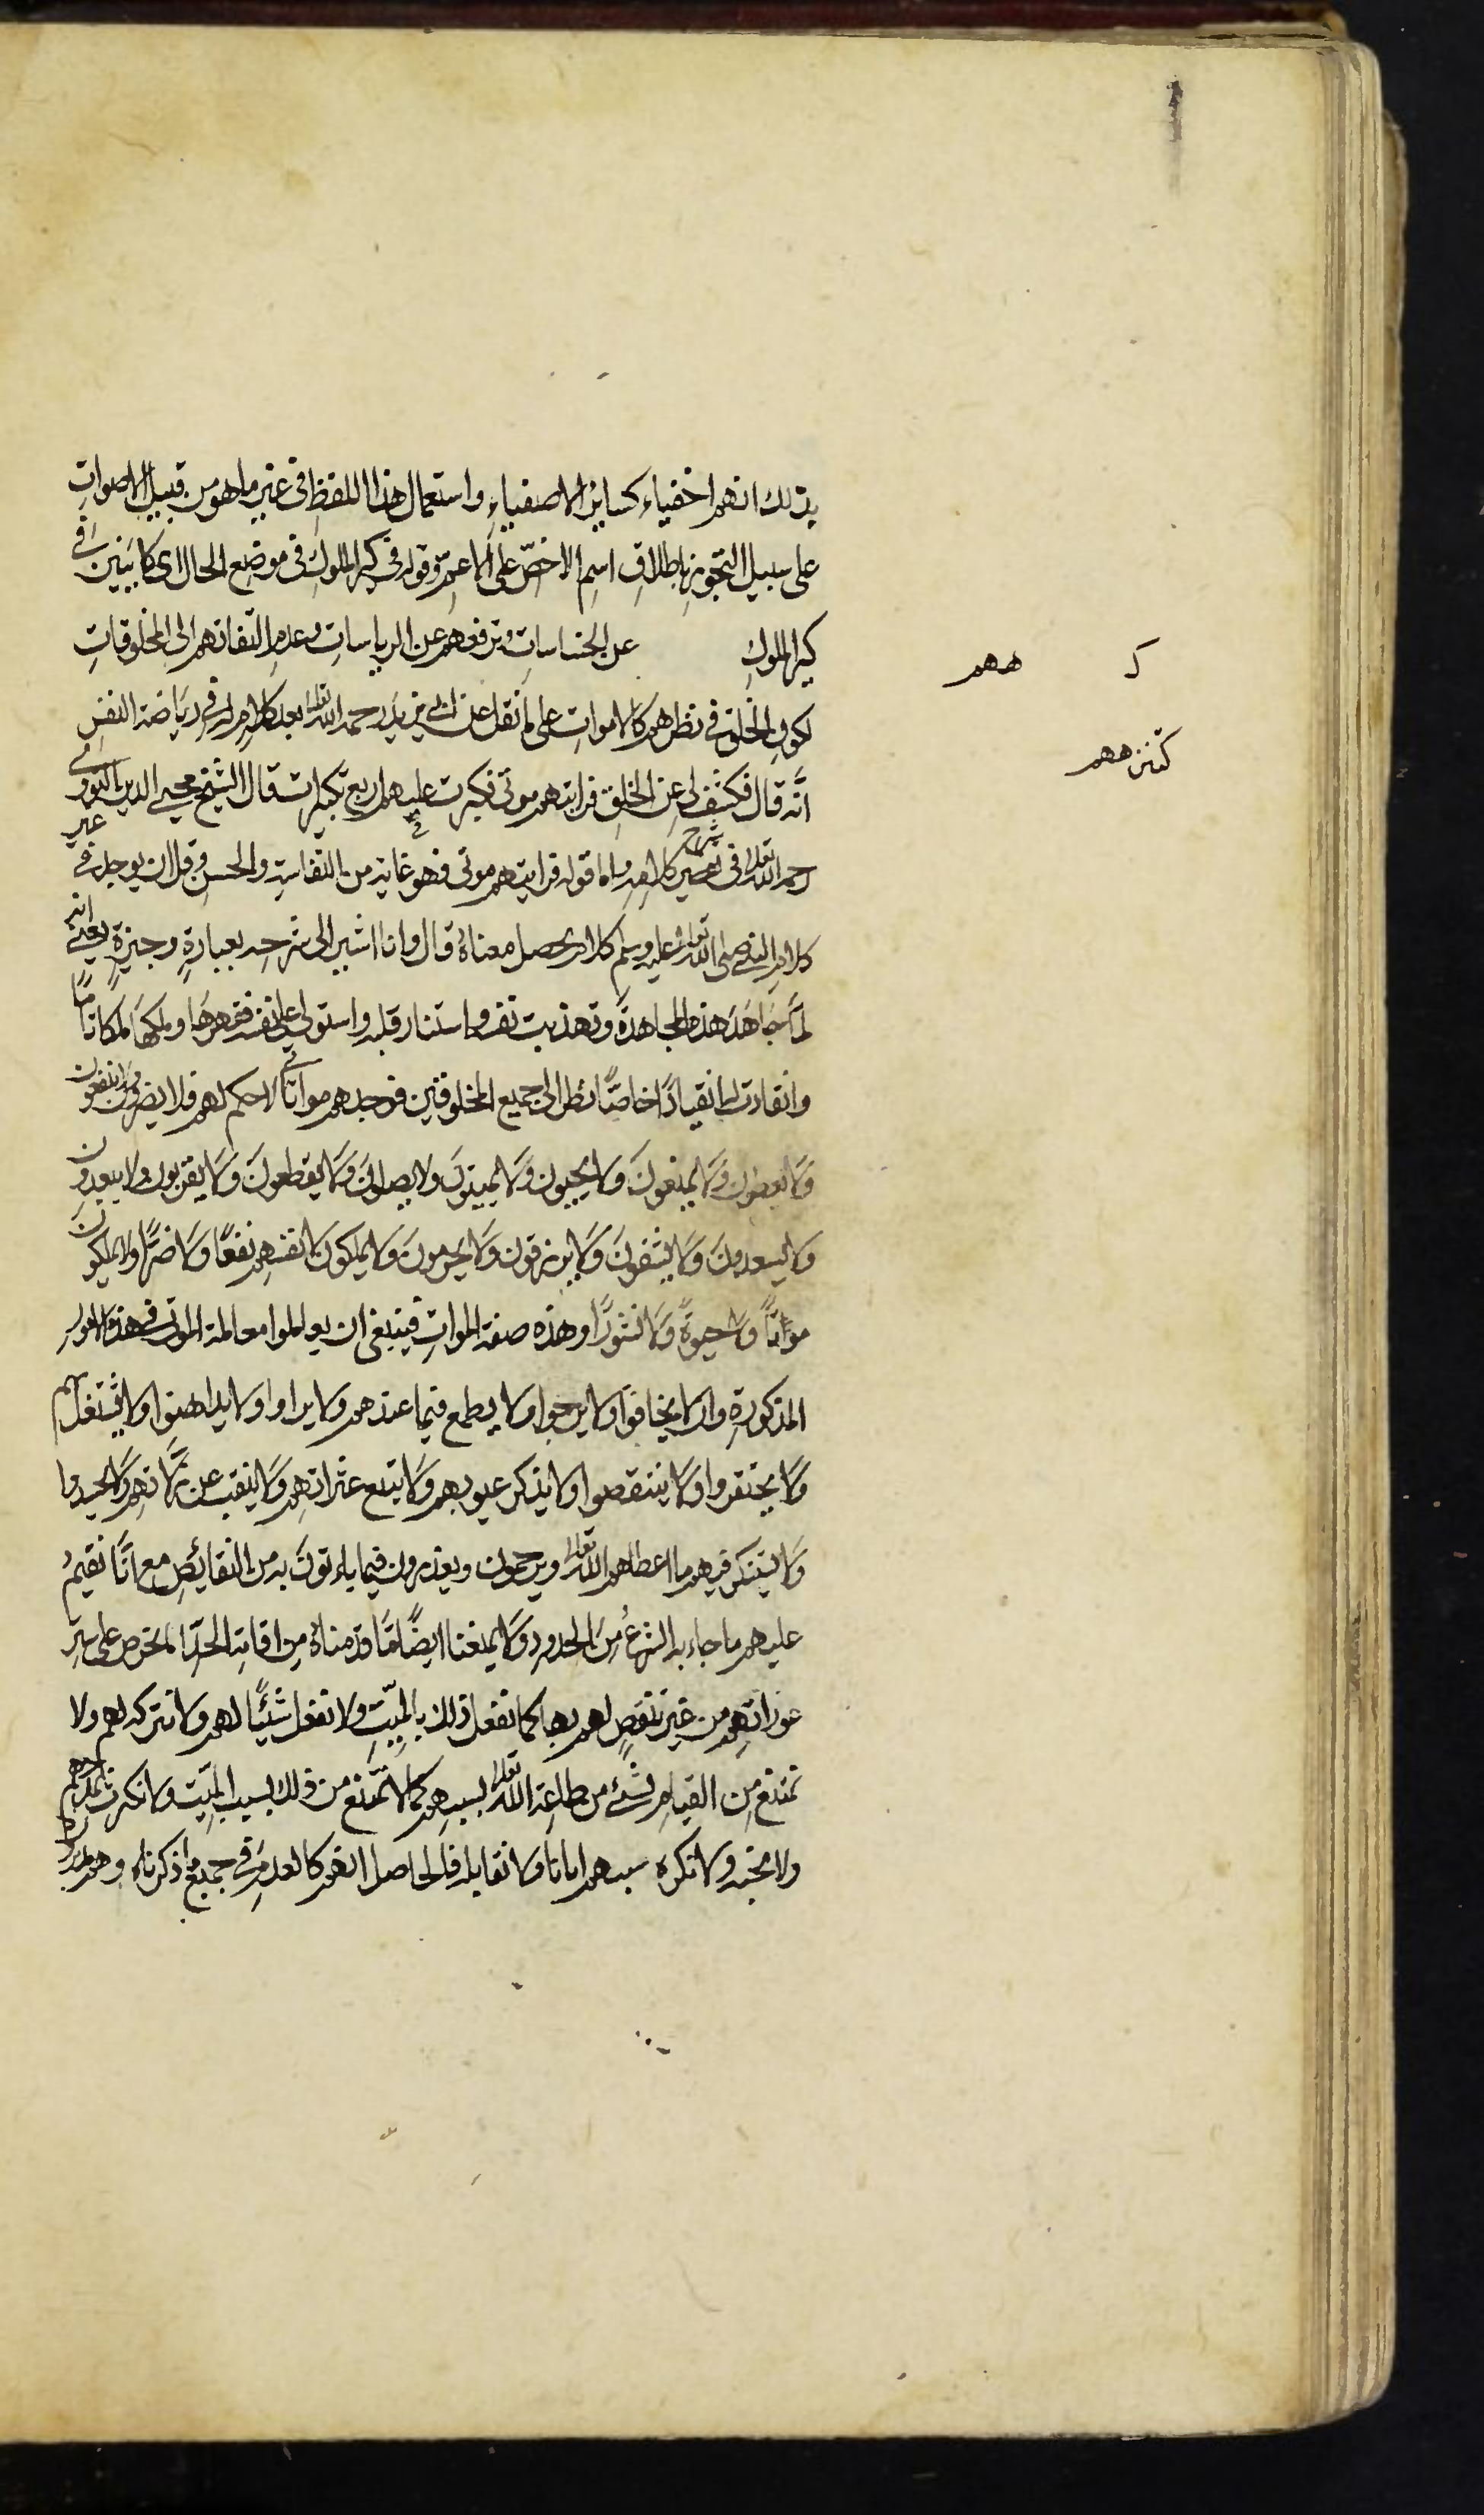 بذلك انهم اخفياء كسائر الاصفياءِ واستعمال هذا اللفظِ فى غير ما هو من قبيل الاصواتِ
على سبيل التجويز باطلاقِ اسمِ الاخصّ على الاعمّ وقوله فى كبر الملوكِ فى موضع الحال اى كاينين فى
كبر الملوكِ عن الخساساتِ وترفعهم عن الرياساتِ وعدم التفاتهم الى المخلوقاتِ
كـ ـزههم
كتنزههم
لكون الخلق فى نظرهم كالامواتِ على ما نقل عن ابى يزيد رحمه الله تعالى بعد كلام له فى رياضة النفس
انّه قال فكشف لى عن الخلقِ فرايتهم موتى فكبرت عليهم اربع تكبيرات قال الشيخ محيى الدين النووى
رحمه الله تعالى فى شرح كلامه واما قوله فرايتهم موتى فهو غاية من النفاسةِ والحسنِ وقل ان يوجد فى غير
كلام النبى صلى الله تعالى عليه وسلم كلام يحصل معناهُ قال وانا اشير الى شرحه بعبارةٍ وجيزةٍ يعنى انه
لمّا جاهَدَ هذه المجاهدةَ وتهذبت نفسه واستنار قلبه واستولى على نفسه فقهرها وملكها ملكا تامًّا
وانقادت له انقيادًا خاصّا نظر الى جميع المخلوقين فوجدهم مواتًا لا حكم لهم فلا يضرون ولا ينفعون
ولا يعطون ولا يمنعونَ ولا يحيون ولا يميتونَ ولا يصلون ولا يقطعونَ ولا يقربون ولا يبعدون
ولا يسعدونَ ولا يشقونَ ولا يرزقون ولا يحرمونَ ولا يملكون لانفسهم نفعًا ولا ضرّا ولا يملكون
مواتًا ولا حيوةً ولا نشورًا وهذه صفة المواتِ فينبغى ان يعاملوا معاملة الموتى فى هذه الامور
المذكورةِ وان لا يخافوا ولا يرجوا ولا يطمع فيما عندهم ولا يراوا ولا يداهنوا ولا يشتغل بهم
ولا يحتقروا ولا ينتقصوا ولا يذكر عيوبهم ولا يتتبع عثراتهم ولا ينقب عن زلّاتهم ولا يحسدوا
ولا يستكثر فيهم ما اعطاهم الله تعالى ويرحمون ويعذرون فيما ياتونَ به من النقائصِ مع انّا نقيمُ
عليهم ما جاء به الشرعُ من الحدودِ ولا يمنعنا ايضًا مّا قدمناهُ من اقامة الحدّ الحرص على ستر
عوراتهم من غير تنقصٍ لهم بها كما نفعل ذلك بالميّتِ ولا نفعل شيئًا لهم ولا نتركه لهم ولا
نمتنع من القيامِ بشئٍ من طاعةِ الله تعالى بسببهم كما لا نمتنع من ذلك بسبب الميّتِ ولا نكترث بمدحهم
ولا نحبه ولا نكره سبهم ايانا ولا نقابله فالحاصل انهم كالعدم فى جميع ما ذكرناه وهم مدبرون